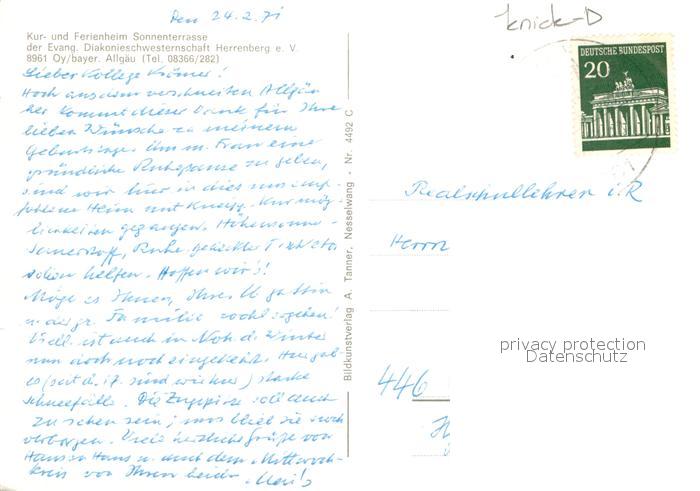 Den 24.2.71
Kur- und Ferienheim Sonnenterrasse
der Evang. Diakonieschwesternschaft Herrenberg e. V.
8961 Oy/bayer. Allgäu (Tel. 08366/282)
Lieber Kollege Krämer!
Hoch aus dem verschneiten Allgäu
her kommt dieser Dank für Ihre
lieben Wünsche zu meinem
Geburtstage. Um m. Frau eine
gründliche Ruhepause zu geben,
sind wir hier in dies uns emp-
fohlene Heim mit Kneipp-Kurmög-
lichkeiten gegangen. Höhensonne
Sauerstoff, Ruhe, gedeckter Tisch etc
sollen helfen. Hoffen wir's!
Möge es Ihnen, Ihrer Gattin
u. der gr. Familie wohl ergehen!
Viell. ist auch in der Winter
nun doch noch eingekehrt. Hier gab
es (seit d. 17. sind wir hier) starke
Schneefälle. Die Zugspitze soll auch
zu sehen sein; uns blieb sie noch
verborgen. Viele herzliche Grüße von
Haus zu Haus u. auch dem Mittwoch-
kreis von Ihren beiden
Bildkunstverlag A. Tanner, Nesselwang - Nr. 4492 C
knick-D
DEUTSCHE BUNDESPOST
20
Realschullehrer i. R
Herrn
privacy protection
Datenschutz
446